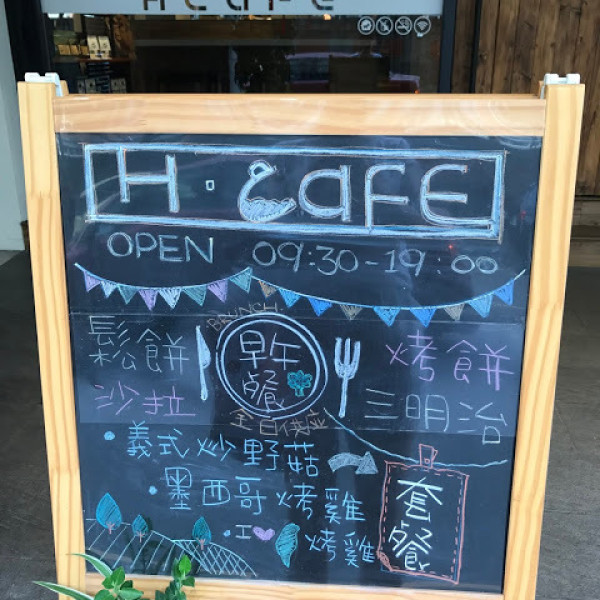 H CAFE
H · CAFE
OPEN 09:30-19:00
BRUNCH
鬆餅 早午餐 烤餅
沙拉 三明治
全日供应
·義式炒野菇
·墨西哥烤雞
·I 烤雞
套餐